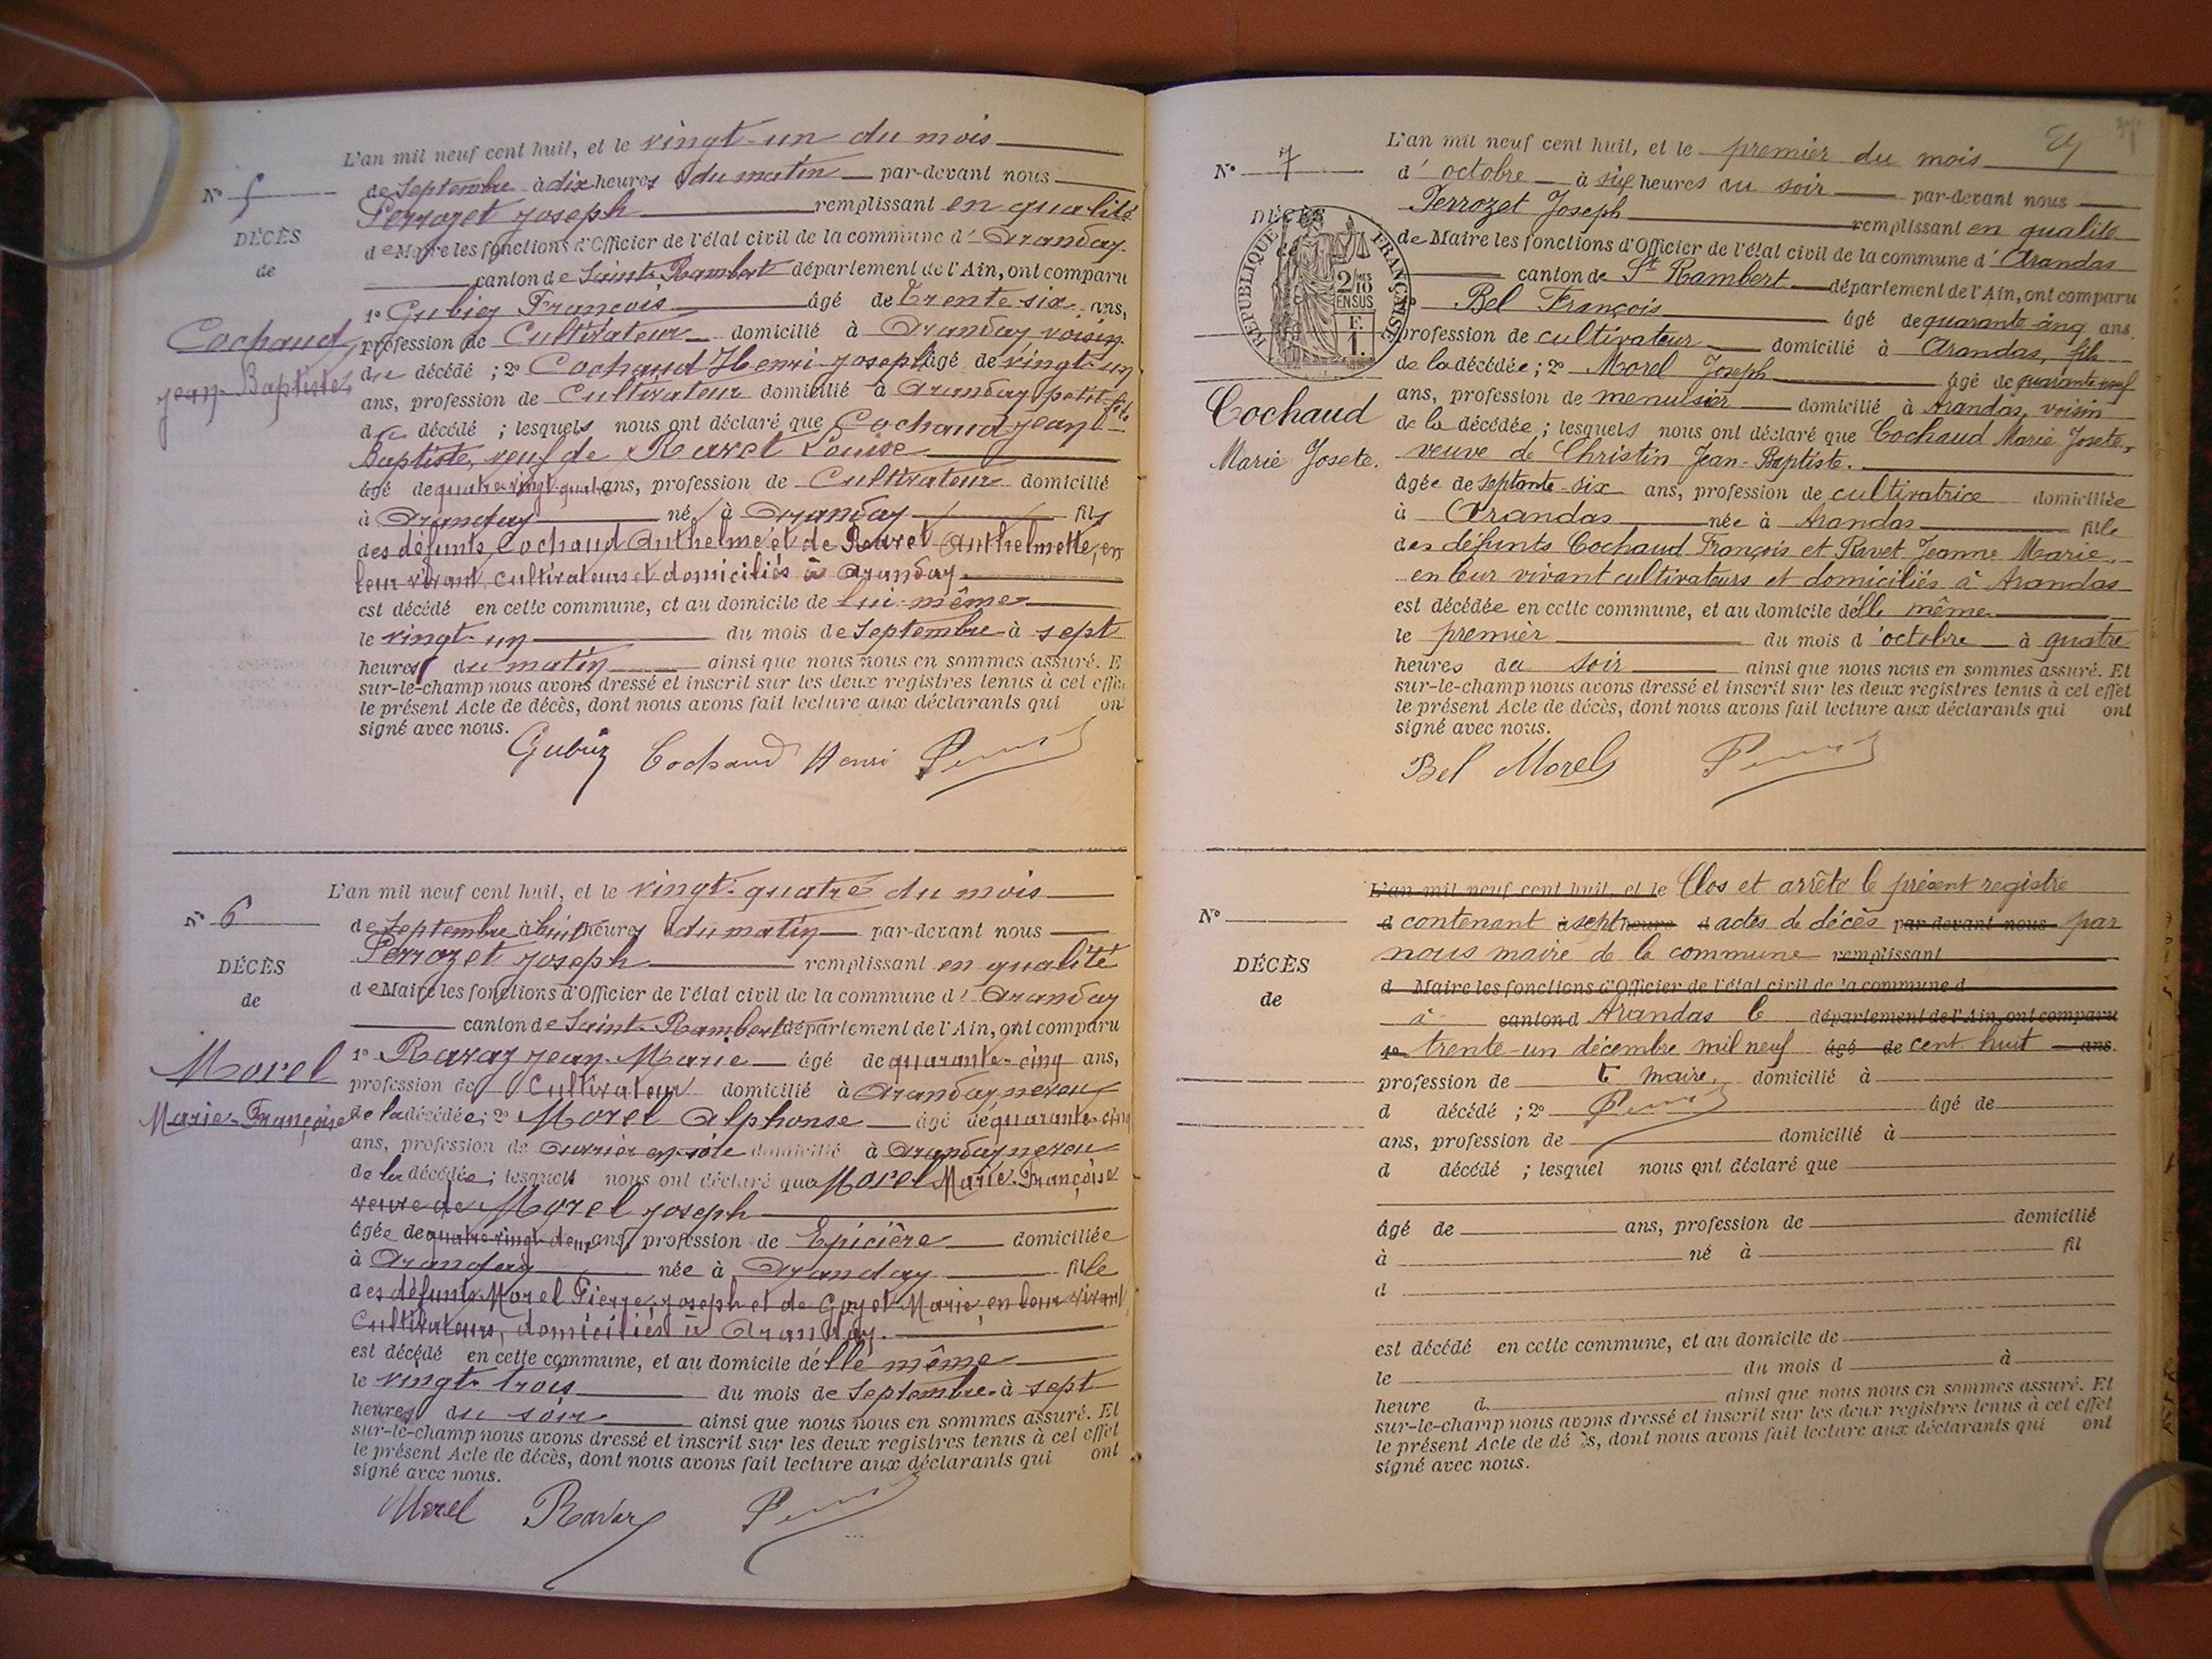 L'an mil neuf cent huit, et le vingt-un du mois
N° 5
de Septembre à dix heures du matin par-devant nous
Perrozet Joseph remplissant en qualité
DÉCÈS
de Maire les fonctions d'Officier de l'état civil de la commune d' Arandas
de
canton de Saint-Rambert département de l'Ain, ont comparu
1° Gubiez François âgé de trente six ans,
Cochaud
profession de Cultivateur domicilié à Arandas, voisin
Jean-Baptiste
du décédé ; 2° Cochaud Henri-Joseph âgé de vingt-un
ans, profession de Cultivateur domicilié à Arandas, petit-fils
du décédé ; lesquels nous ont déclaré que Cochaud Jean
Baptiste, veuf de Ravet Louise
âgé de quatre-vingt-quatre ans, profession de Cultivateur domicilié
à Arandas né à Arandas fils
des défunts Cochaud Anthelme et de Ravet Anthelmette, en
leur vivant, cultivateurs et domiciliés à Arandas.
est décédé en cette commune, et au domicile de lui-même
le vingt-un du mois de Septembre à sept
heures du matin ainsi que nous nous en sommes assuré. E
sur-le-champ nous avons dressé et inscrit sur les deux registres tenus à cet effet
le présent Acte de décès, dont nous avons fait lecture aux déclarants qui ont
signé avec nous.
Gubiez Cochaud Henri
L'an mil neuf cent huit, et le vingt-quatre du mois
N° 6
de Septembre à huit heures du matin par-devant nous
Perrozet Joseph remplissant en qualité
DÉCÈS
de Maire les fonctions d'Officier de l'état civil de la commune d' Arandas
de
canton de Saint-Rambert département de l'Ain, ont comparu
1° Ravaz Jean-Marie âgé de quarante-cinq ans,
Morel
profession de Cultivateur domicilié à Arandas neveu
Marie-Françoise
de la décédée ; 2° Morel Alphonse âgé de quarante-cinq
ans, profession de ouvrier en soie domicilié à Arandas neveu
de la décédée ; lesquels nous ont déclaré que Morel Marie-Françoise
veuve de Morel Joseph
âgée de quatre-vingt-deux ans, profession de Epicière domiciliée
à Arandas née à Arandas fille
des défunts Morel Pierre-Joseph et de Goyet Marie, en leur vivant
Cultivateurs, domiciliés à Arandas.
est décédé en cette commune, et au domicile d'elle même
le vingt-trois du mois de Septembre à sept
heures du soir ainsi que nous nous en sommes assuré. Et
sur-le-champ nous avons dressé et inscrit sur les deux registres tenus à cet effet
le présent Acte de décès, dont nous avons fait lecture aux déclarants qui ont
signé avec nous.
Morel Ravaz
L'an mil neuf cent huit, et le premier du mois
N° 7
d' octobre à six heures du soir par-devant nous
Perrozet Joseph remplissant en qualité
DÉCÈS
RÉPUBLIQUE FRANÇAISE
2/10 MES EN SUS
F. 1.
de Maire les fonctions d'Officier de l'état civil de la commune d' Arandas
canton de St Rambert département de l'Ain, ont comparu
Bel François âgé de quarante-cinq ans
profession de cultivateur domicilié à Arandas, fils
de la décédée ; 2° Morel Joseph âgé de quarante neuf
Cochaud
ans, profession de menuisier domicilié à Arandas, voisin
de la décédée ; lesquels nous ont déclaré que Cochaud Marie Josete,
Marie Josete.
veuve de Christin Jean-Baptiste.
âgée de septante-six ans, profession de cultivatrice domiciliée
à Arandas née à Arandas fille
des défunts Cochaud François et Ravet Jeanne Marie,
en leur vivant cultivateurs et domiciliés à Arandas
est décédée en cette commune, et au domicile d'elle même
le premier du mois d'octobre à quatre
heures du soir ainsi que nous nous en sommes assuré. Et
sur-le-champ nous avons dressé et inscrit sur les deux registres tenus à cet effet
le présent Acte de décès, dont nous avons fait lecture aux déclarants qui ont
signé avec nous.
Bel Morel
L'an mil neuf cent huit, et le Clos et arrêté le présent registre
N°
d contenant à sept heure d actes de décès par-devant nous par
nous maire de la commune remplissant
DÉCÈS
d Maire les fonctions d'Officier de l'état civil de la commune d
de
à canton d Arandas le département de l'Ain, ont comparu
1° trente-un décembre mil neuf âgé de cent huit ans.
profession de le maire, domicilié à
d décédé ; 2° âgé de
ans, profession de domicilié à
d décédé ; lesquel nous ont déclaré que
âgé de ans, profession de domicilié
à né à fil
d
est décédé en cette commune, et au domicile de
le du mois d à
heure d ainsi que nous nous en sommes assuré. Et
sur-le-champ nous avons dressé et inscrit sur les deux registres tenus à cet effet
le présent Acte de décès, dont nous avons fait lecture aux déclarants qui ont
signé avec nous.